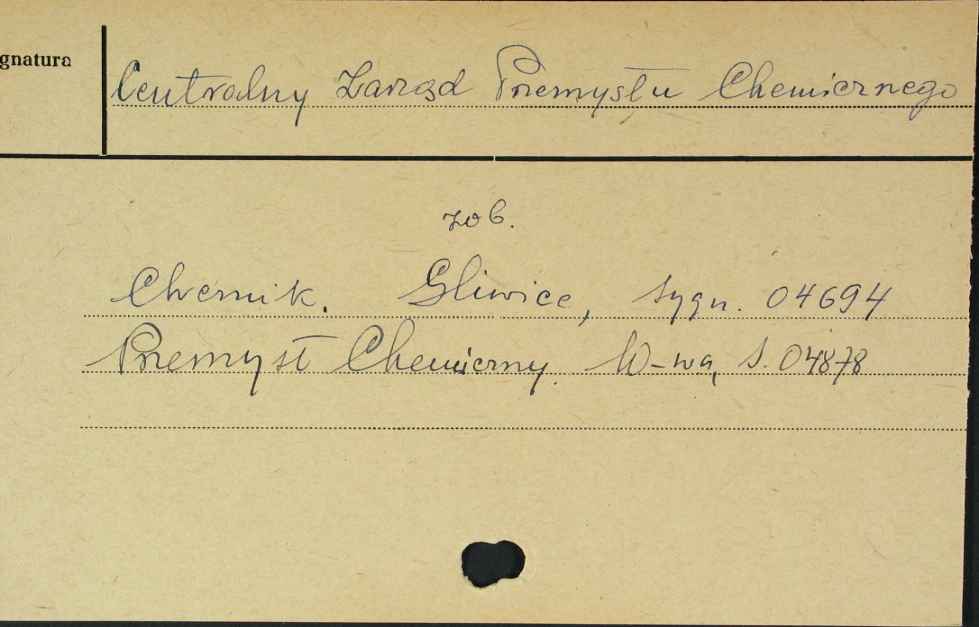 gnatura
Centralny Zarząd Przemysłu Chemicznego
zob.
Chemik. Gliwice, sygn. 04694
Przemysł Chemiczny. W-wa, s. 04878